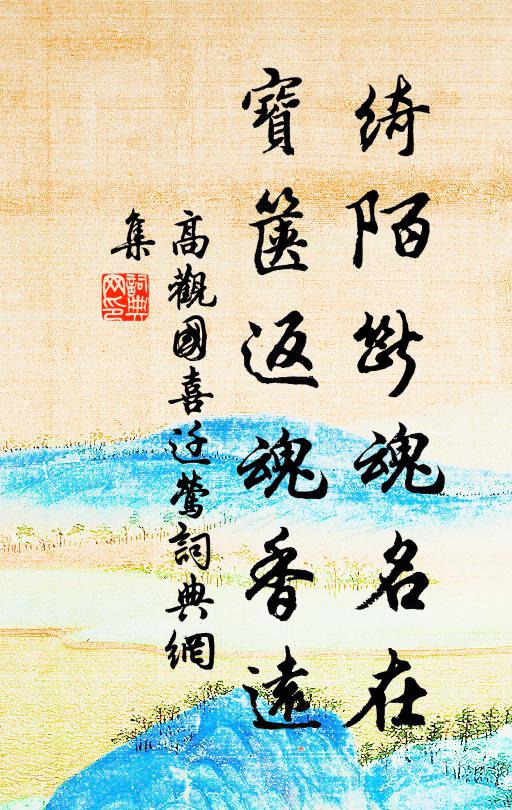 綺陌斷魂名在
寶篋返魂香遠
高觀國喜迁鶯詞典網
集
詞典网印